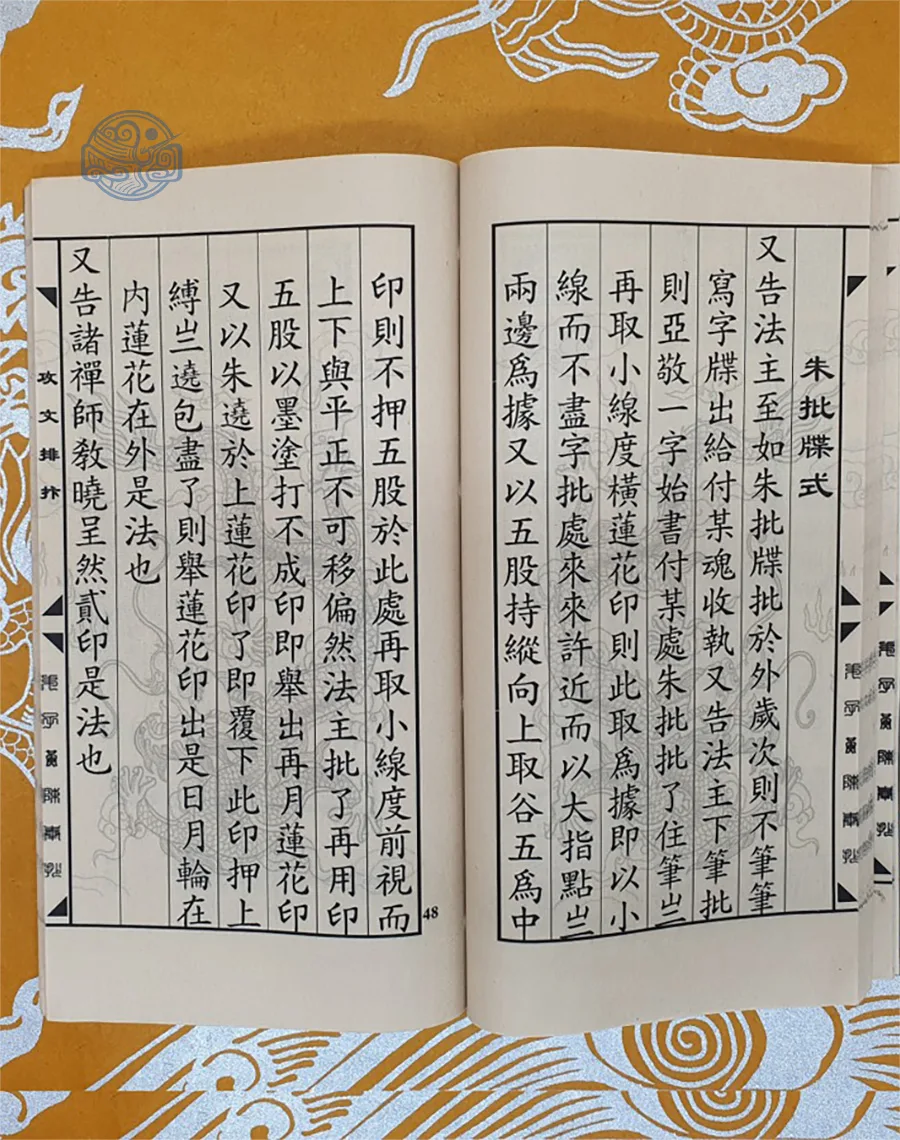 朱批牒式
又告法主至如朱批牒批於外歲次則不筆筆
寫字牒出給付某魂收執又告法主下筆批
則亞敬一字始書付某處朱批批了住筆亗
再取小線度橫蓮花印則此取爲據即以小
線而不盡字批處來來許近而以大指點亗
兩邊爲據又以五股持縱向上取谷五爲中
印則不押五股於此處再取小線度前視而
上下與平正不可移偏然法主批了再用印
五股以墨塗打不成印即舉出再月蓮花印
又以朱遶於上蓮花印了即覆下此印押上
縛亗遶包盡了則舉蓮花印出是日月輪在
內蓮花在外是法也
又告諸禪師教曉呈然貳印是法也
48